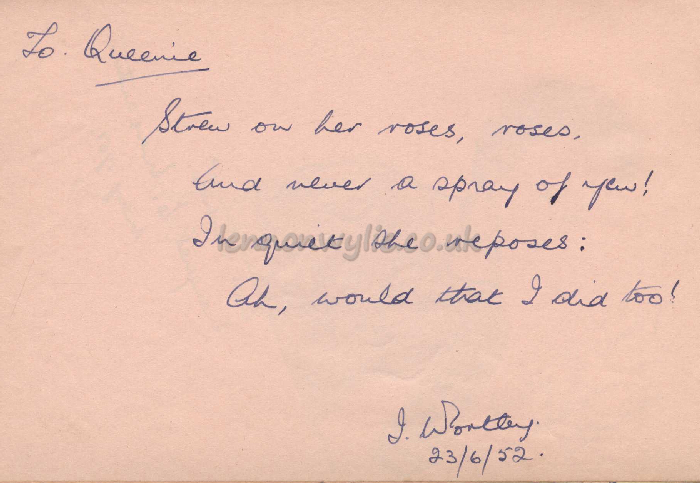 To. Queenie
Strew on her roses, roses,
And never a spray of yew!
In quiet she reposes:
Ah, would that I did too!
I. Wortley.
23/6/52.